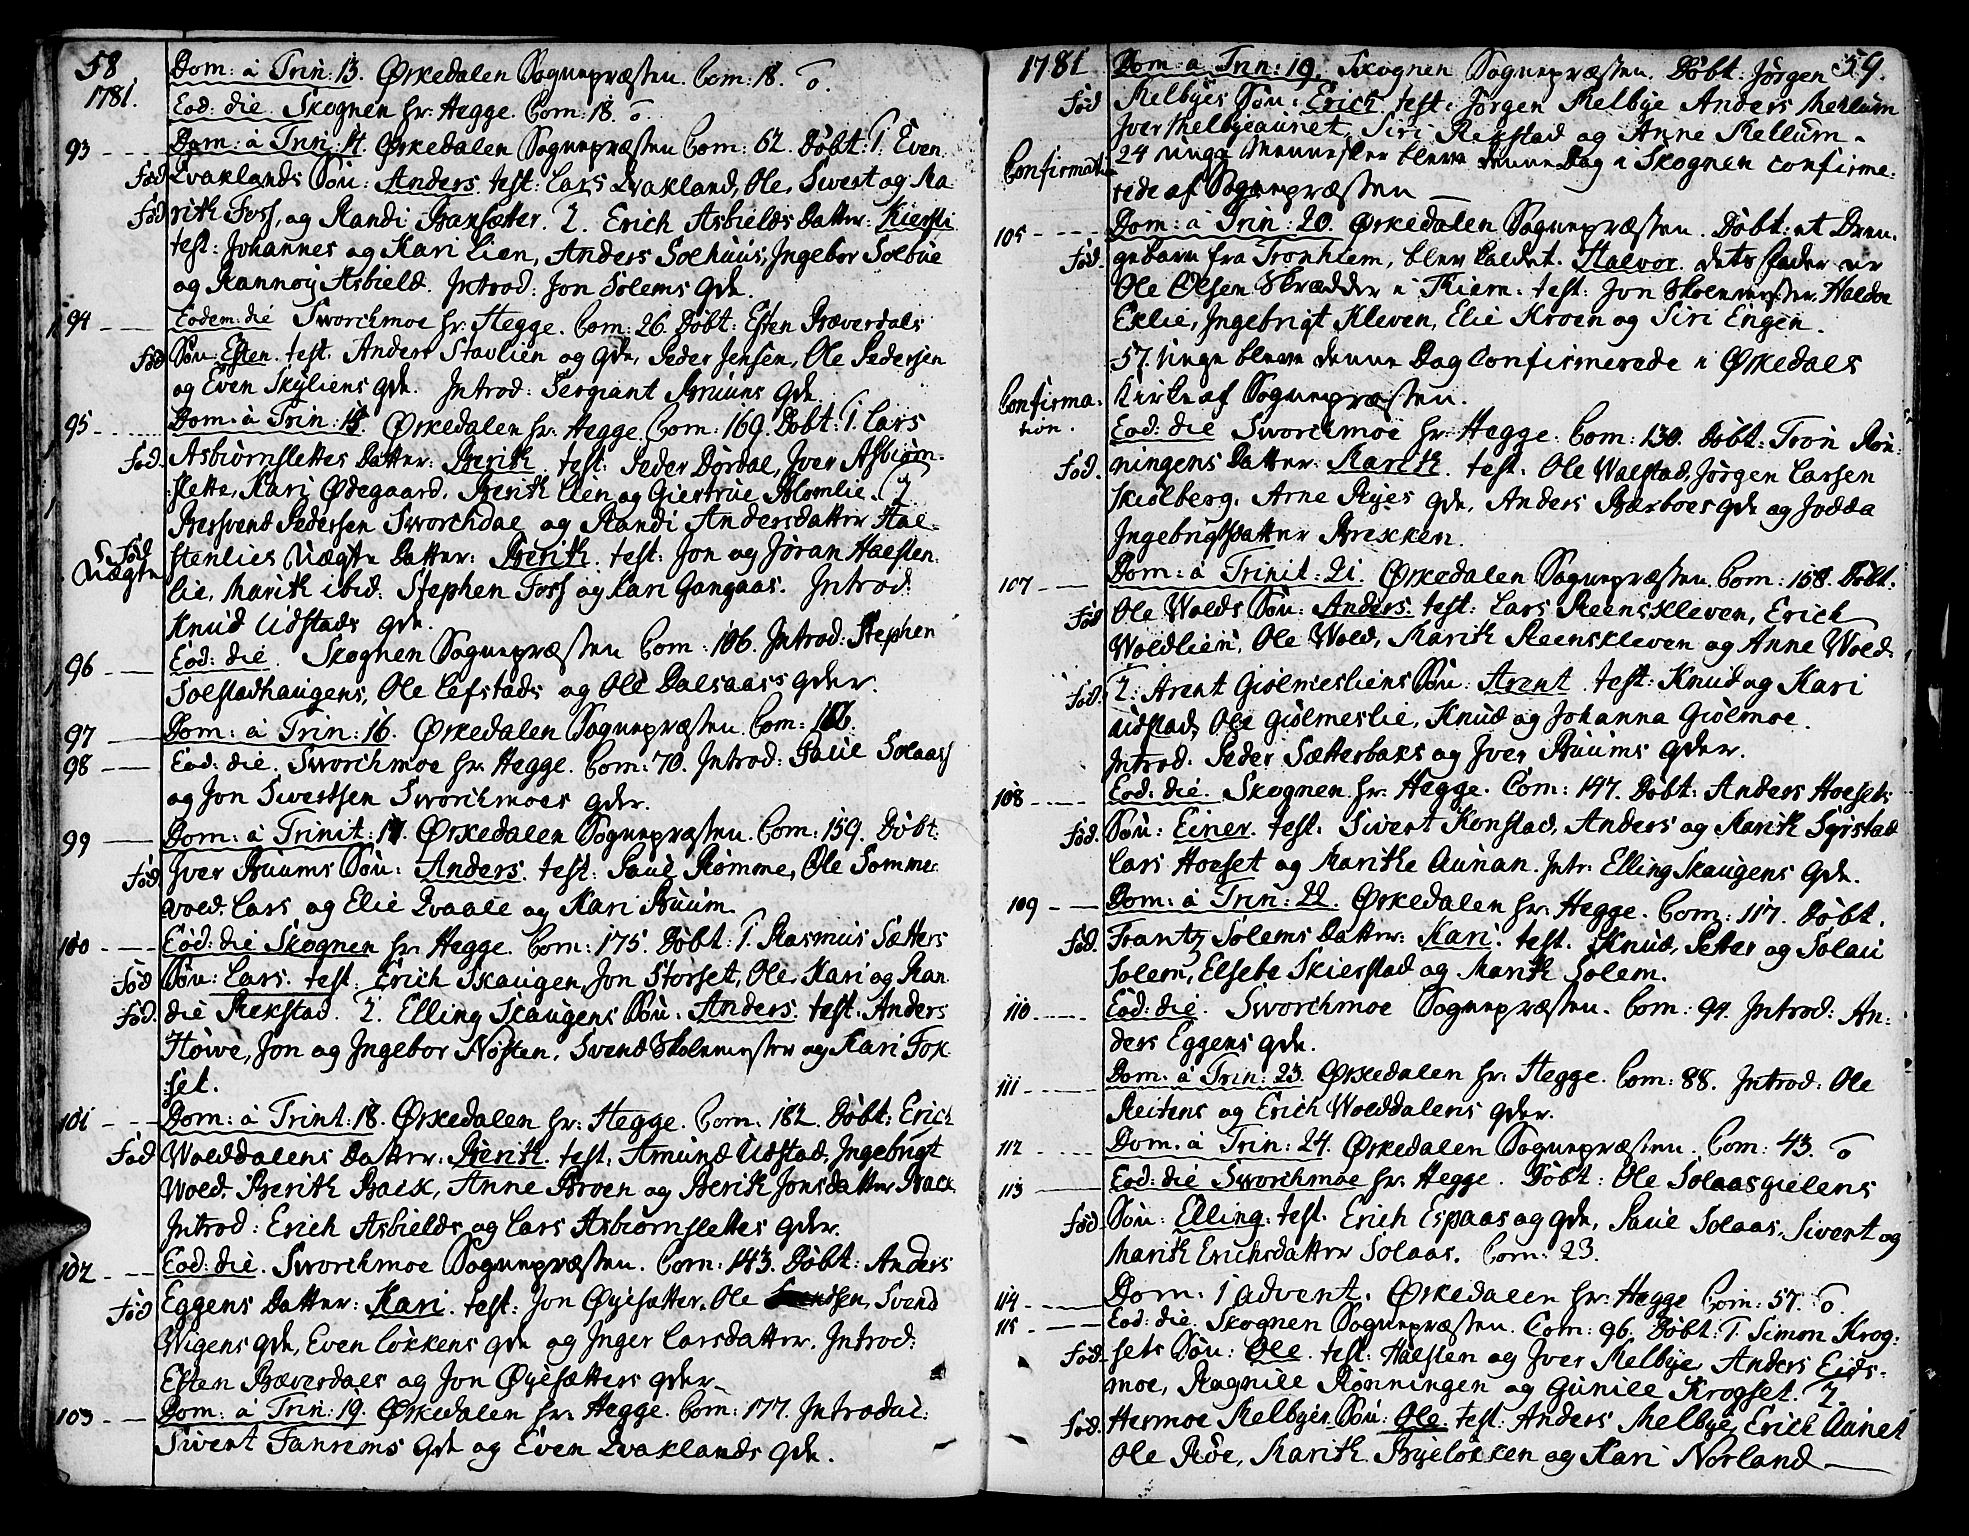 58
1781.
Dom: à Trin: 13. Ørkedalen Sognepræsten. Com: 18. o.
Eod: die. Skognen hr: Hegge. Com: 18. o
93 Dom: à Trin: 14. Ørkedalen Sognepræsten Com: 62. Døbt: 1. Even
Fød Qvaklands Søn: Anders. test: Lars Qvakland, Ole, Sivert og Ma-
Fød rith Foss, og Randi Bransætter. 2. Erich Asbields Datter: Kiersti
test: Johannes og Kari Lien, Anders Solhuus, Ingebor Solbue
og Rannøy Asbield. Introd: Jon Solems qde.
94 Eodem: die Sworchmoe hr: Hegge. Com: 26. Døbt: Esten Bæverdals
Fød Søn: Esten. test. Anders Stavlien og qde, Peder Jensen, Ole Pedersen
og Even Skyliens qde. Introd: Sergiant Bruuns qde.
95 Dom. à Trin: 15. Ørkedalen hr: Hegge. Com: 169. Døbt: 1. Lars
Fød. Asbiørnslettes Datter: Berith. test: Peder Dørdal, Iver Asbiørn-
slette, Kari Ødegaard, Berith Lien og Giertrue Blomlie. 2.
Bersvend Pedersen Sworchdal og Randi Andersdatter Hal-
Fød Uægte stenlies Uægte Datter: Berith. test: Jon og Jøran Halsten
lie, Marith ibid: Stephen Foss og Kari Gangaas. Introd:
Knud Udstads qde.
96 Eod: die. Skognen Sognepræsten Com: 106. Introd: Stephen
Solstadhaugens, Ole Lefstads og Ole Dalsaass qder.
97 Dom: à Trin: 16. Ørkedalen Sognepræsten. Com:
98 Eod: die. Sworchmoe hr: Hegge. Com: 70. Introd: Paul Solaass
og Jon Sivertsen Sworchmoes qder.
99 Dom: à Trinit: 17. Ørkedalen Sognepræsten. Com: 159. Døbt:
Fød Iver Buums Søn: Anders. test: Paul Rømme, Ole Sommer
vold. Lars og Elie Qvaale og Kari Buum.
100 Eod: die Skognen hr: Hegge. Com: 175. Døbt: 1. Rasmus Sætters
Fød Søn: Lars. test: Erich Skaugen, Jon Storset, Ole, Kari og Ran-
Fød. die Rekstad. 2. Elling Skaugens Søn: Anders. test: Anders
Howe, Jon og Ingebor Nøsten, Svend Skolemester og Kari Fox
set.
101 Dom: à Trint: 18. Ørkedalen hr: Hegge. Com. 182. Døbt: Erich
Fød Wolddalens Datter: Berith. test: Amund Udstad, Ingebrigt
Wold. Berith Back, Anne Broen og Berith Jonsdatter Back
Introd: Erich Asbields og Lars Asbiørnslettes qder.
102 Eod: die. Sworchmoe Sognepræsten. Com: 143. Døbt: Anders
Fød Eggens Datter: Kari. test: Jon Øyesætter, Ole Svend
Wigens qde, Even Løkkens qde og Inger Larsdatter. Introd:
Esten Bæverdals og Jon Øyesætters qder.
103 Dom: à Trin: 19. Ørkedalen hr: Hegge. Com: 177. Introdul:
Sivert Fanrems qde og Even Qvaklands qde.
1781 59.
Dom: à Trin: 19. Skognen Sognepræsten. Døbt: Jørgen
Fød Melbyes Søn: Erich. test: Jørgen Melbye Anders Mellum
Iver Melbyeaunet, Siri Rekstad og Anne Mellum.
Confirmat- 24 unge Mennesker bleve denne Dag i Skognen confirme-
rede af Sognepræsten
105 Dom: à Trin: 20. Ørkedalen Sognepræsten. Døbt: et Dren-
Fød. gebarn fra Tronhiem, blev kaldet. Halvor. dets Fader er
Ole Olsen Skrædder i Thiem. test: Jon Skolemester, Haldor
Eklie, Ingebrigt Kleven, Elie Kroen og Siri Engen.
57. Unge bleve denne Dag Confirmerede i Ørkedals
Confirma-tion. Kirke af Sognepræsten.
Eod: die Sworchmoe hr: Hegge. Com: 130. Døbt: Tron Røn-
Fød. ningens Datter: Marith. test. Ole Walstad, Jørgen Larsen
Skiølberg, Arne Ryes qde, Anders Bærboes qde og Jodda
Ingebrigtsdatter Brekken.
107 Dom: à Trinit: 21. Ørkedalen Sognepræsten. Com: 158. Døbt.
Fød Ole Wolds Søn: Anders. test: Lars Reenskleven, Erich
Woldlien, Ole Wold, Marith Reenskleven og Anne Wold.
Fød. 2: Arent Giølmesliens Søn: Arent. test: Knud og Kari
Udstad, Ole Giølmeslie, Knud og Johanna Giølmoe.
Introd: Peder Sætterbaks og Iver Buums qder.
108 Eod: die. Skognen hr: Hegge. Com: 147. Døbt: Anders Hoelsets
Fød. Søn: Einer. test. Sivert Konstad, Anders og Marith Syrstad
Lars Hoelset og Marithe Aunan. Intr: Elling Skaugens qde.
109 Dom: à Trin: 22. Ørkedalen hr: Hegge. Com: 117. Døbt.
Fød. Frantz Solems Datter: Kari. test. Knud, Petter og Olau
Solem, Elsebe Skierstad og Marith Solem.
110 Eod: die. Sworchmoe Sognepræsten. Com: 94. Introd: An-
ders Eggens qde.
111 Dom. à Trin: 23. Ørkedalen hr: Hegge. Com: 88. Introd: Ole
Reitens og Erich Wolddalens qder.
112 Dom. à Trin: 24. Ørkedalen Sognepræsten. Com: 43. o
113 Eod: die Sworchmoe hr: Hegge. Døbt: Ole Solaasgielens
Fød. Søn: Elling. test. Erich Espaas og qde, Paul Solaas, Sivert og
Marith Erichsdatter Solaas. Com: 23.
114 Dom. 1 advent. Ørkedalen hr: Hegge Com: 57. o.
115 Eod: die. Skognen Sognepræsten. Com: 96. Døbt: 1. Simon Krog-
Fød. sets Søn: Ole. test: Halsten og Iver Melbye, Anders Eids-
moe, Ragnile Rønningen og Gunile Krogset. 2.
Fød. Hermoe Melbyes Søn: Ole. test: Anders Melbye, Erich Aunet
Ole Roe, Marith Byeløkken og Kari Norland